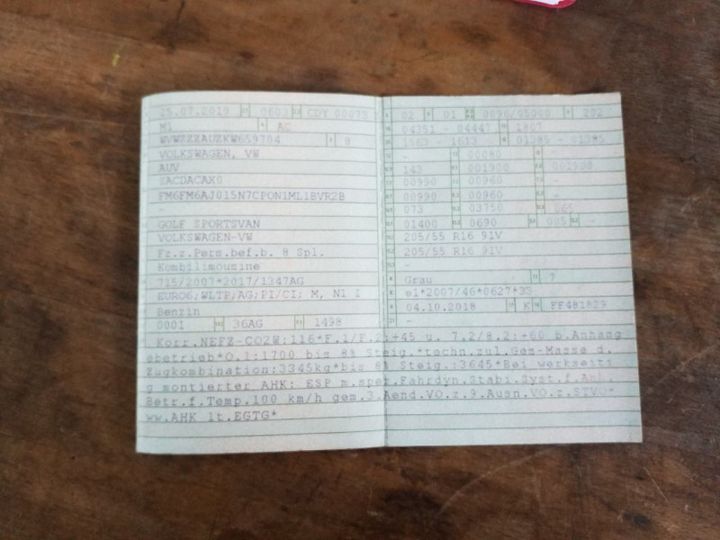 25.07.2019 0603 CDY 00073
M1 AC
WVWZZZAUZKW659704 8
VOLKSWAGEN, VW
AUV
ZACDACAX0
FM6FM6AJ015N7CPON1ML1BVR2B
-
GOLF SPORTSVAN
VOLKSWAGEN-VW
Fz.z.Pers.bef.b. 8 Spl.
Kombilimousine
715/2007*2017/1347AG
EURO6;WLTP;AG;PI/CI; M, N1 I
Benzin
0001 36AG 1498
02 01 0096/05000 202
04351 - 04447 1807
- 1613 01585
- 00080 -
143 001900 001900
00990 00960 -
00990 00960 -
073 03750
01400 0690 005 -
205/55 R16 91V
205/55 R16 91V
-
Grau 7
e1*2007/46*0627*
04.10.2018 K FF481829
-
Korr.NEFZ-CO2W:116*F.1/F.2:+45 u. 7.2/8.2:+60 b.Anhang
ebetrieb*O.1:1700 bis 8% Steig.*techn.zul.Ges-Masse d.
Zugkombination:3345kg*bis 8% Steig.:3645*Bei werkseiti
g montierter AHK: ESP m.sper.Fahrdyn.Stabi.Syst.f.Anh.
Betr.f.Temp.100 km/h gem.3.Aend.VO.z.9.Ausn.VO.z.STVO*
ww.AHK lt.EGTG*